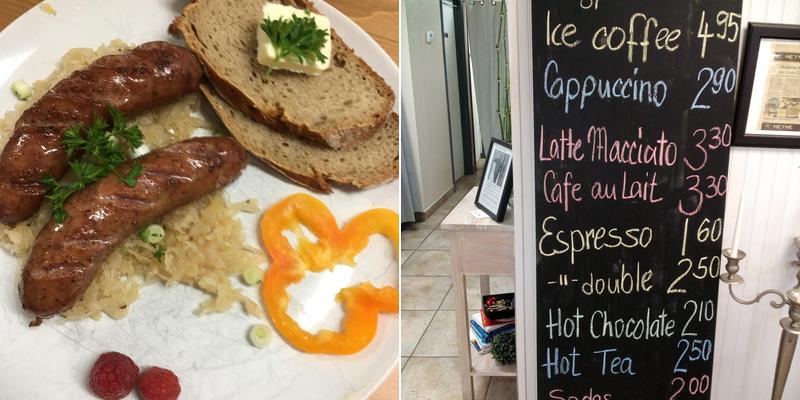 Ice coffee 4.95
Cappuccino 2.90
Latte Macciato 3.30
Cafe au Lait 3.30
Espresso 1.60
-"-double 2.50
Hot Chocolate 2.10
Hot Tea 2.50
Sodas 2.00
HEYNE